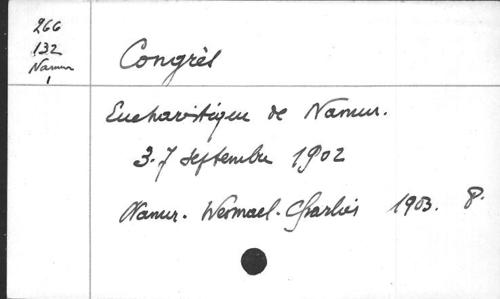 266
132
Namur
1
Congrès
Eucharistique de Namur.
3-7 septembre 1902
Namur. Wesmael-Charlier 1903. 8.